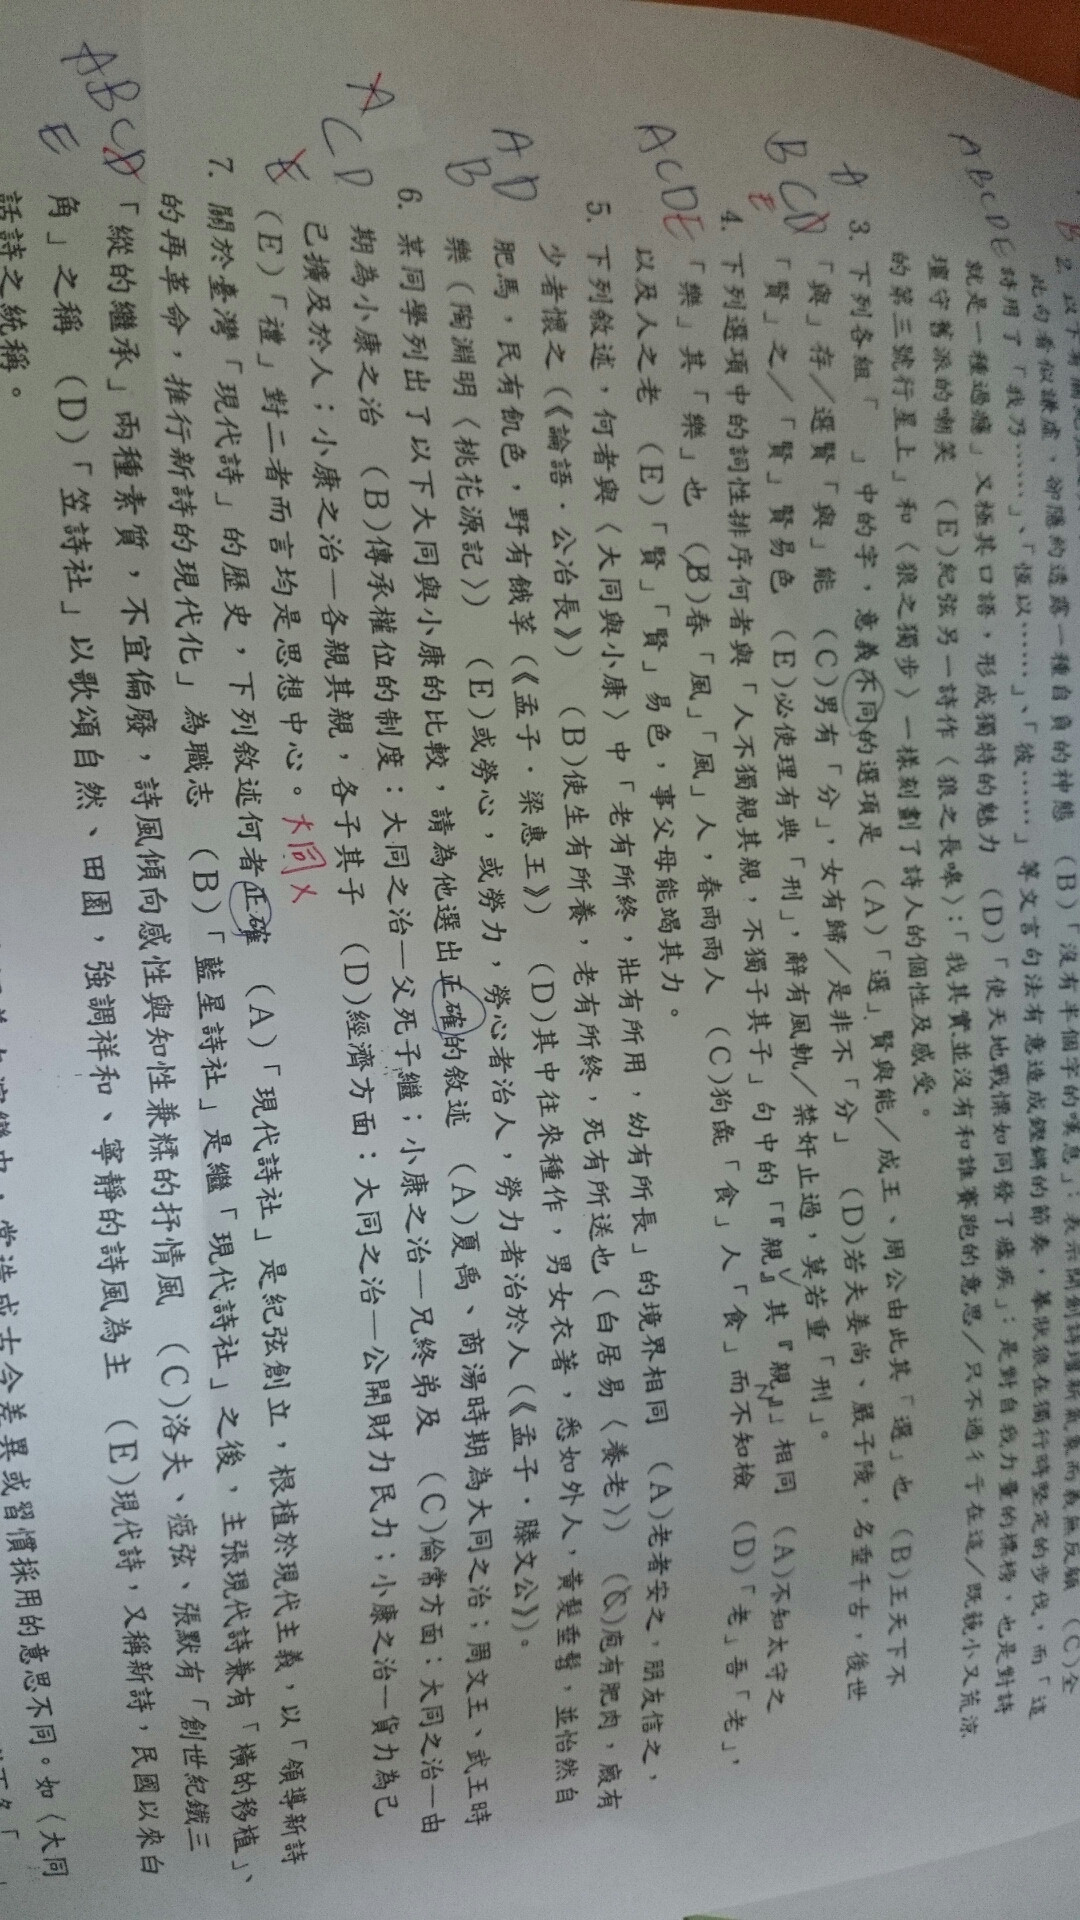 B 2.
此句看似謙虛,卻隱約透露一種自負的神態 (B)「沒有半個字的嘆息」:表示開創詩壇新氣象而義無反顧 (C)全
A B C D E 詩用了「我乃……」、「恆以……」、「彼……」等文言句法有意造成鏗鏘的節奏,摹狀狼在獨行時堅定的步伐,而「這
就是一種過癮」又極其口語,形成獨特的魅力 (D)「使天地戰慄如同發了瘧疾」:是對自我力量的標榜,也是對詩
壇守舊派的嘲笑 (E)紀弦另一詩作〈狼之長嗥〉:「我其實並沒有和誰賽跑的意思/只不過彳亍在這/既藐小又荒涼
的第三號行星上」和〈狼之獨步〉一樣刻劃了詩人的個性及感受。
A 3. 下列各組「 」中的字,意義不同的選項是 (A)「選」賢與能/成王、周公由此其「選」也 (B)王天下不
B C D E 「與」存/選賢「與」能 (C)男有「分」,女有歸/是非不「分」 (D)若夫姜尚、嚴子陵,名垂千古,後世
「賢」之/「賢」賢易色 (E)必使理有典「刑」,辭有風軌/禁奸止過,莫若重「刑」。
4. 下列選項中的詞性排序何者與「人不獨親其親,不獨子其子」句中的「『親』其『親』」相同 (A)不知太守之
A C D E 「樂」其「樂」也 (B)春「風」「風」人,春雨雨人 (C)狗彘「食」人「食」而不知檢 (D)「老」吾「老」,
以及人之老 (E)「賢」「賢」易色,事父母能竭其力。
5. 下列敘述,何者與〈大同與小康〉中「老有所終,壯有所用,幼有所長」的境界相同 (A)老者安之,朋友信之,
少者懷之(《論語.公冶長》) (B)使生有所養,老有所終,死有所送也(白居易〈養老〉) (C)庖有肥肉,廄有
A B D 肥馬,民有飢色,野有餓莩(《孟子.梁惠王》) (D)其中往來種作,男女衣著,悉如外人,黃髮垂髫,並怡然自
樂(陶淵明〈桃花源記〉) (E)或勞心,或勞力,勞心者治人,勞力者治於人(《孟子.滕文公》)。
6. 某同學列出了以下大同與小康的比較,請為他選出正確的敘述 (A)夏禹、商湯時期為大同之治;周文王、武王時
A C D E 期為小康之治 (B)傳承權位的制度:大同之治─父死子繼;小康之治─兄終弟及 (C)倫常方面:大同之治─由
己擴及於人;小康之治─各親其親,各子其子 (D)經濟方面:大同之治─公開財力民力;小康之治─貨力為己
(E)「禮」對二者而言均是思想中心。 大同X
7. 關於臺灣「現代詩」的歷史,下列敘述何者正確 (A)「現代詩社」是紀弦創立,根植於現代主義,以「領導新詩
的再革命,推行新詩的現代化」為職志 (B)「藍星詩社」是繼「現代詩社」之後,主張現代詩兼有「橫的移植」、
A B C D E 「縱的繼承」兩種素質,不宜偏廢,詩風傾向感性與知性兼糅的抒情風 (C)洛夫、瘂弦、張默有「創世紀鐵三
角」之稱 (D)「笠詩社」以歌頌自然、田園,強調祥和、寧靜的詩風為主 (E)現代詩,又稱新詩,民國以來白
話詩之統稱。
常造成古今差異或習慣採用的意思不同。如〈大同